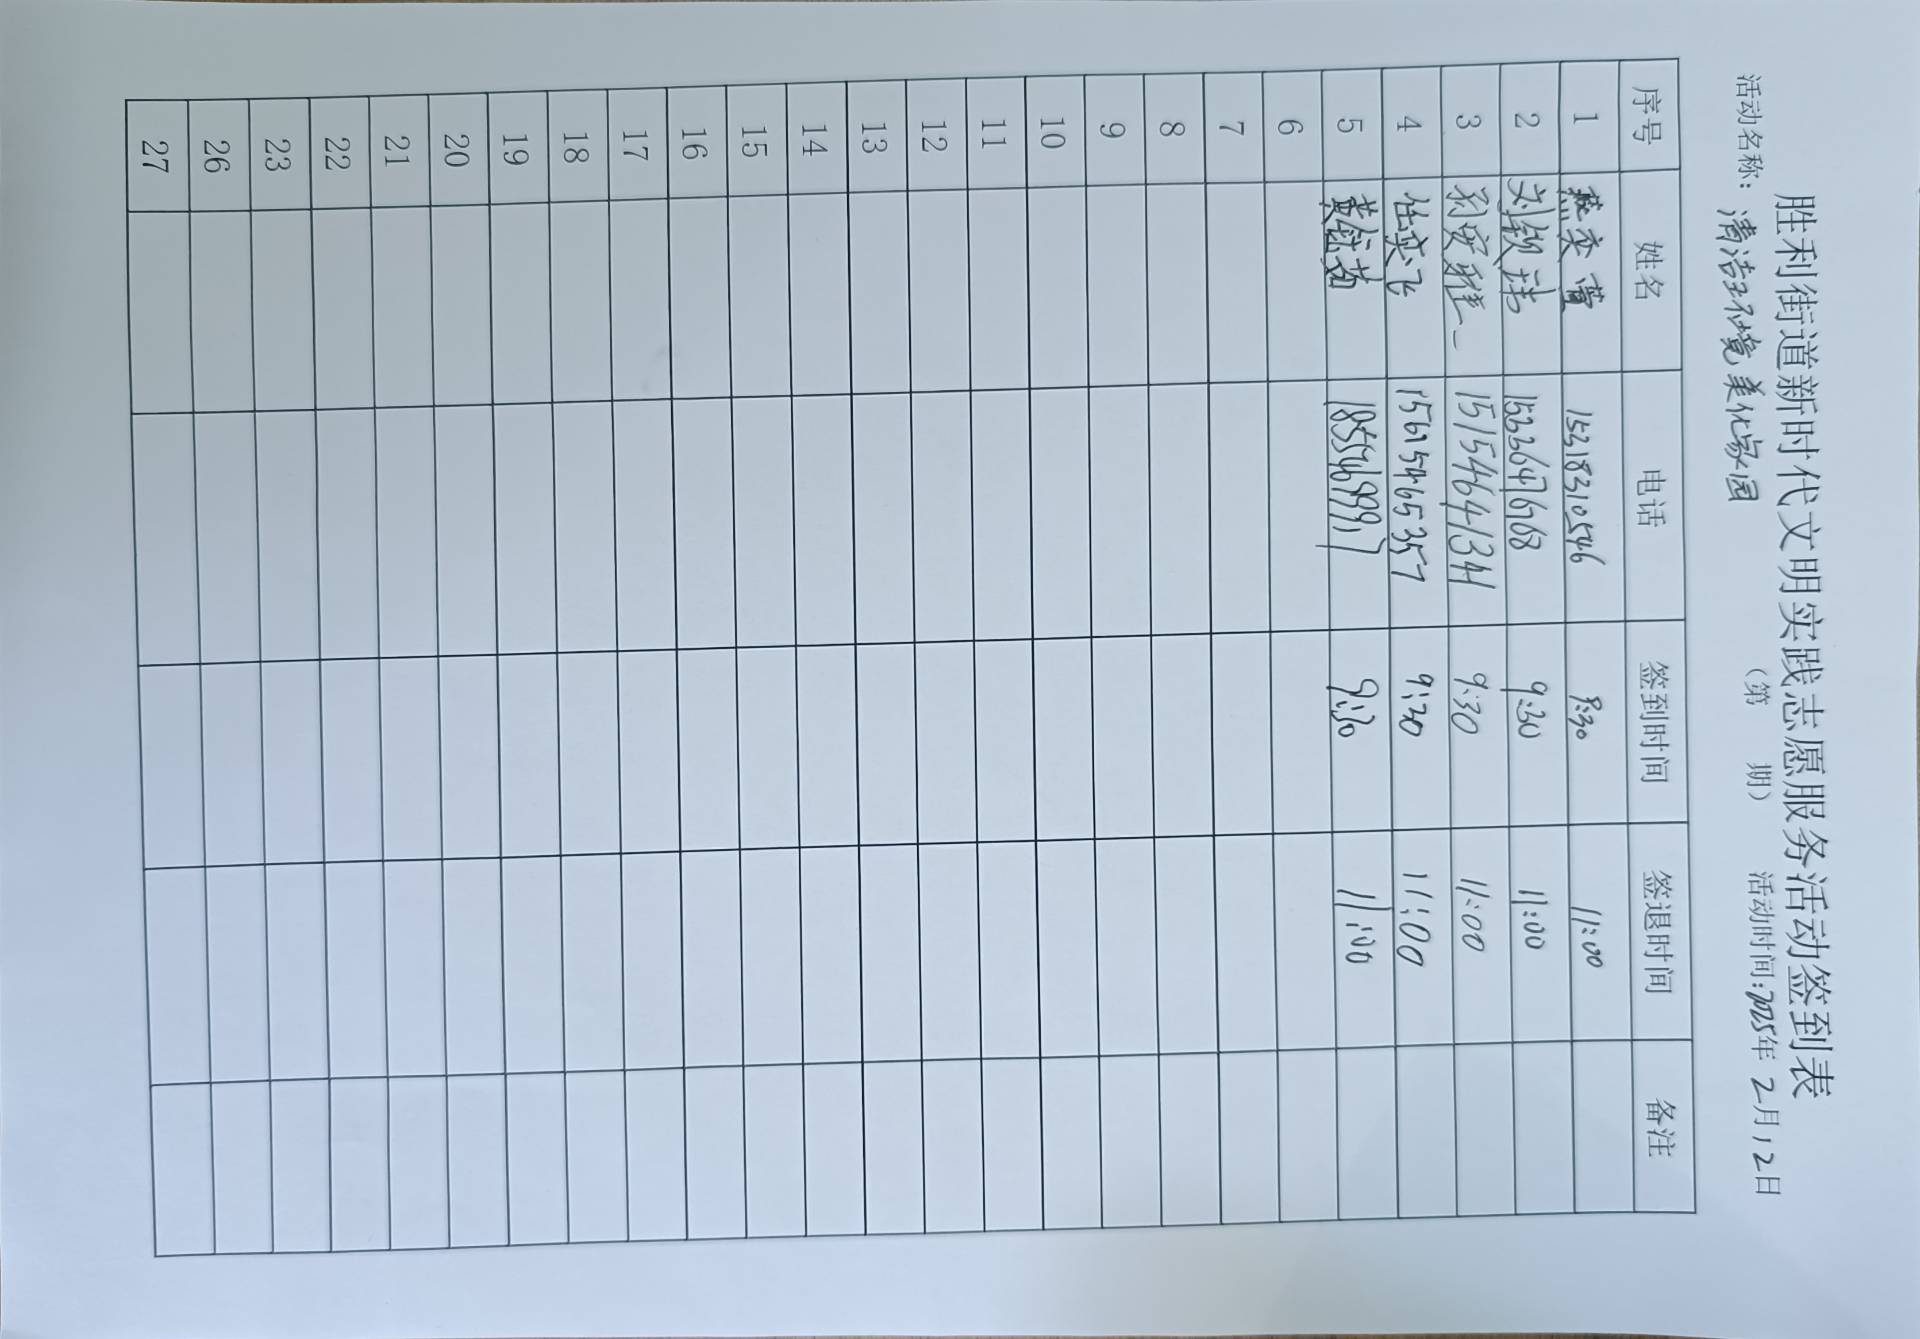 胜利街道新时代文明实践志愿服务活动签到表
活动名称：清洁环境 美化家园 （第 期） 活动时间：2025年 2月12日
序号 姓名 电话 签到时间 签退时间 备注
1 燕奕蕾 15218310546 9:30 11:00
2 刘钦玮 9:30 11:00
3 15154641341 9:30 11:00
4 任奕飞 15615465357 9:30 11:00
5 黄钰茹 9:30 11:00
6
7
8
9
10
11
12
13
14
15
16
17
18
19
20
21
22
23
26
27